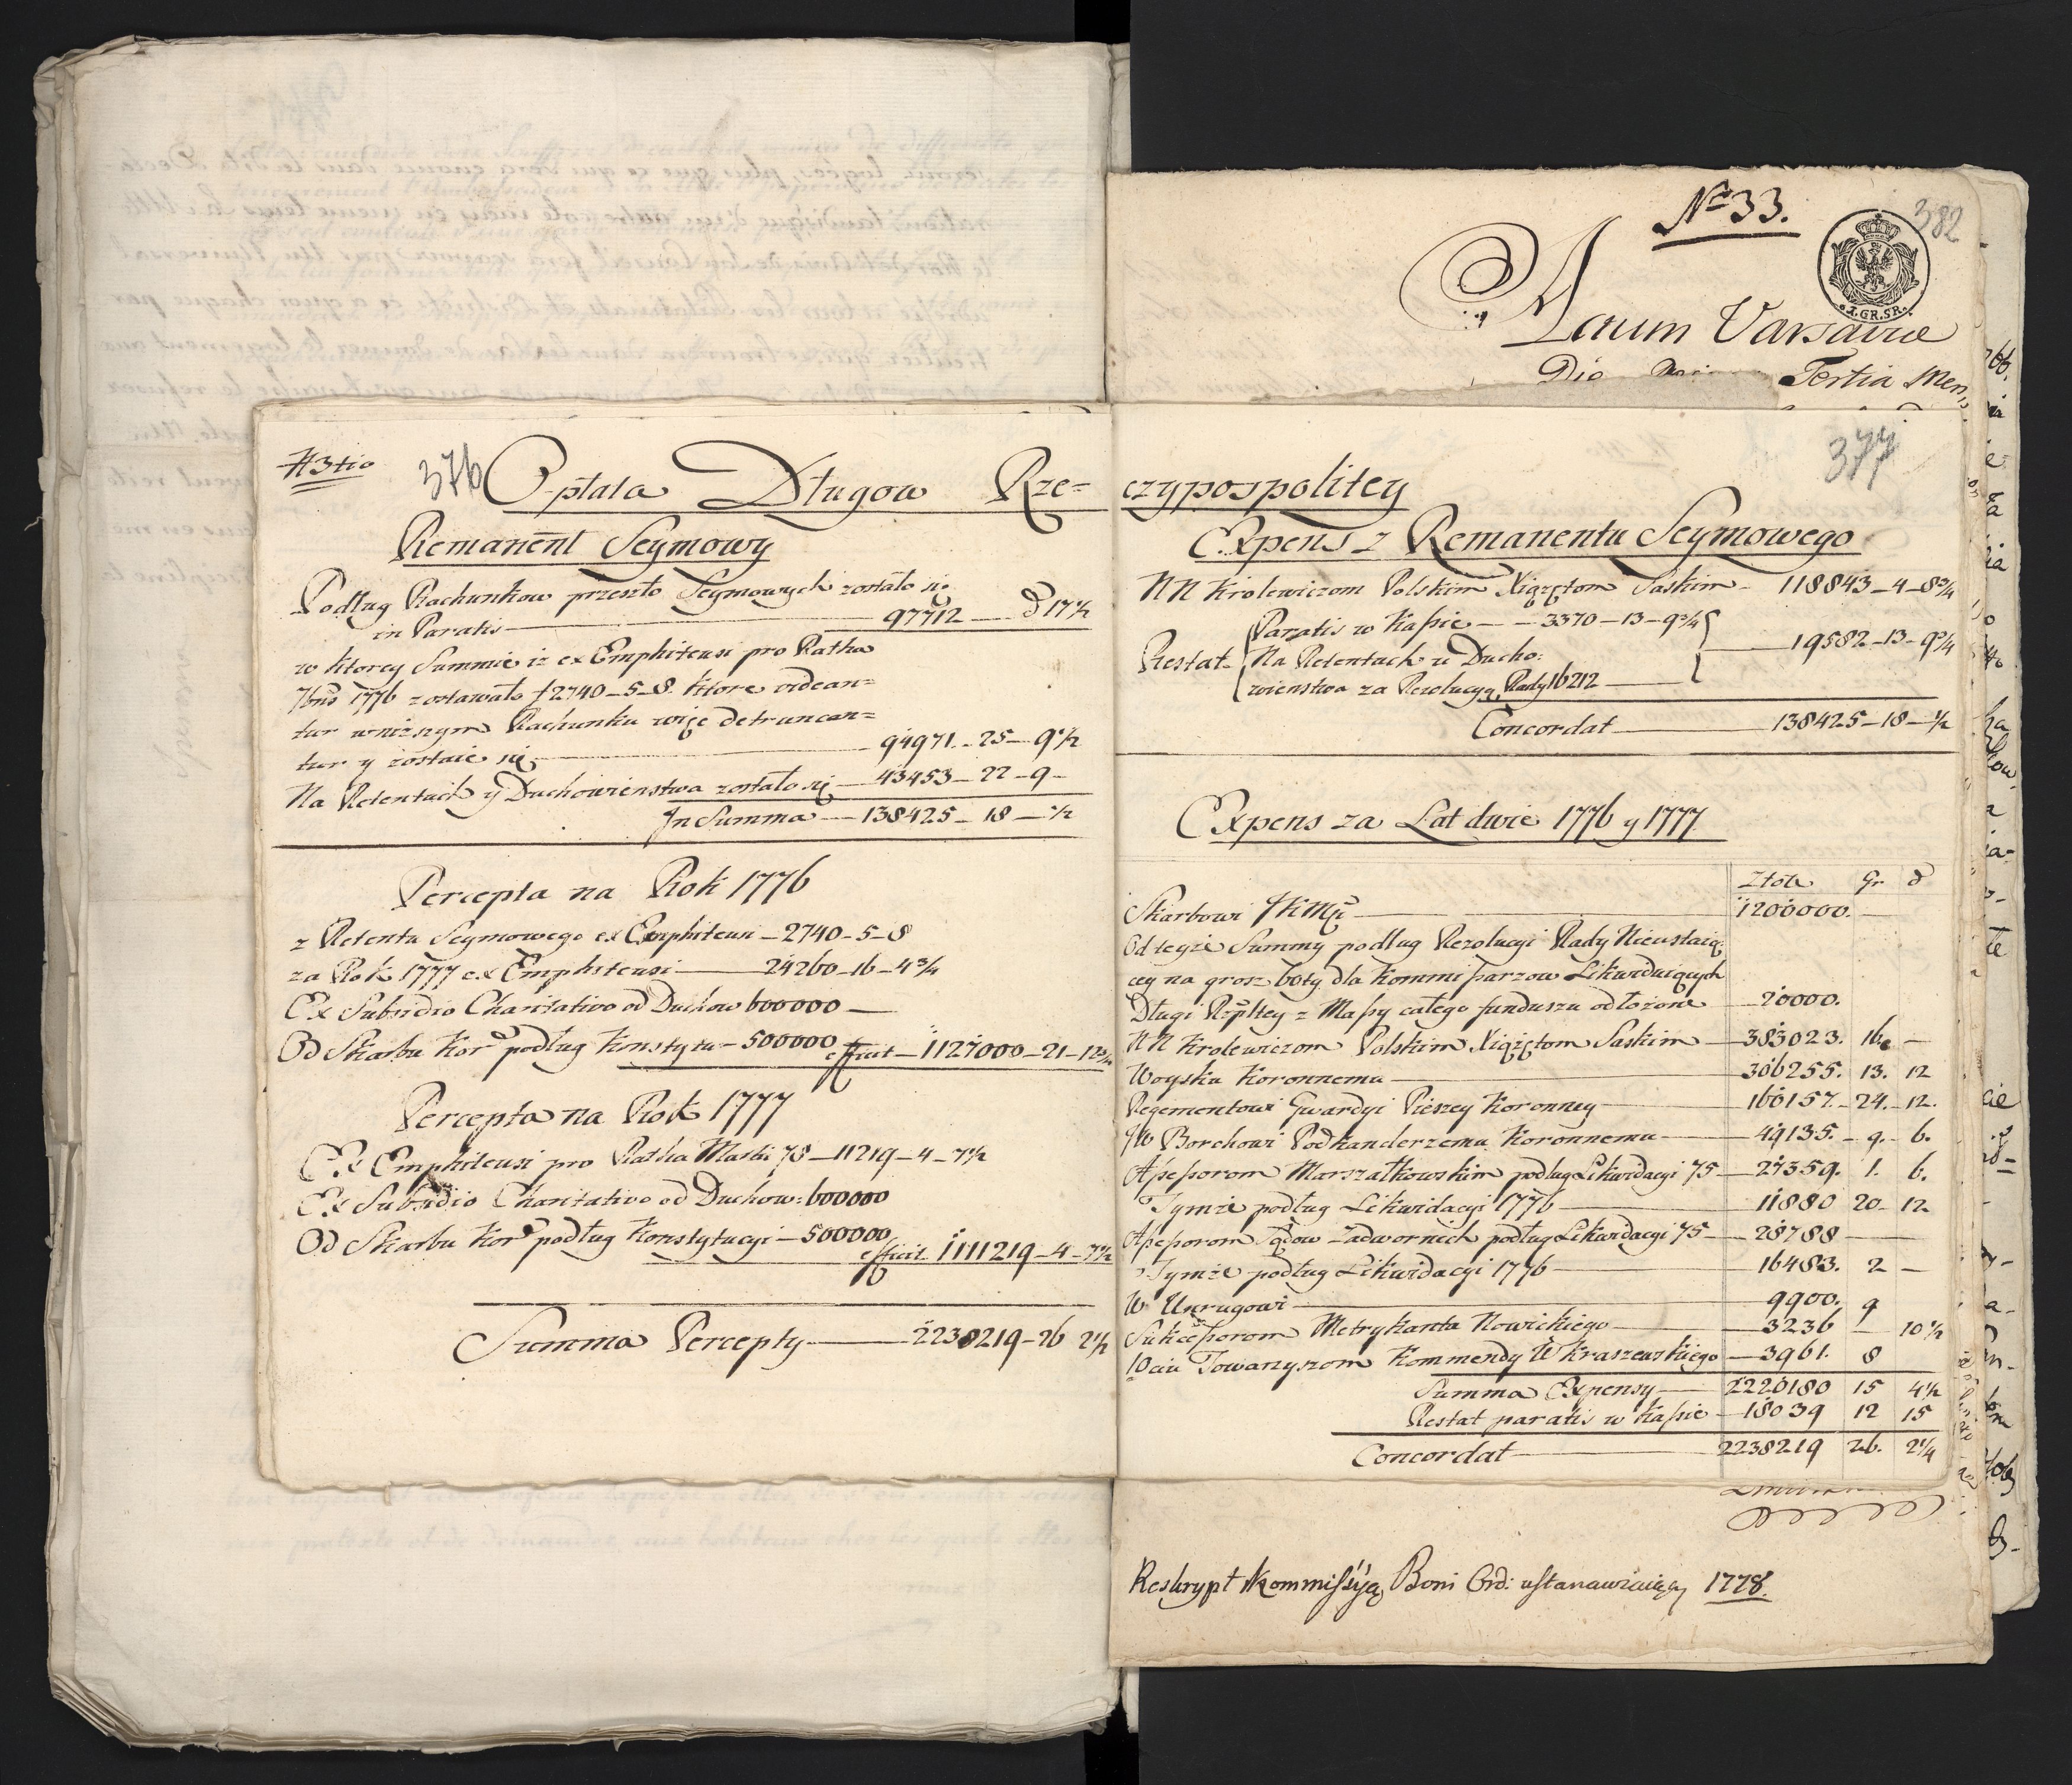 Nº 33.
382
2.GR.SR.
Actum Varsaviæ
Die Tertia Men
N 3tio
376
Opłata Długow Rze=
czypospolitey
377
Remanent Seymowy
Podług Rachunkow przeszło Seymowych zostało się
in Paratis — 97712 — ∂ 17½
w ktorey Summie iż ex Emphiteusi pro Ratha
7bris 1776 zostawało f 2740-5-8. ktore videan=
tur w niższym Rachunku więc detruncan=
tur y zostaie się — 94971-25-9½
Na Retentach y Duchowienstwa zostało się — 43453-22-9-
In Summa — 138425-18-½
Percepta na Rok 1776
z Retentu Seymowego ex Emphiteusi — 2740-5-8
za Rok 1777 ex Emphiteusi — 24260-16-4¾
Ex Subsidio Charitativo od Duchow 600000 —
Od Skarbu Kor° podług Konstytu — 500000 efficit — 1127000-21-12¾
Percepta na Rok 1777
Ex Emphiteusi pro Ratha Martii 78 — 11219-4-7½
Ex Subsidio Charitativo od Duchow: 600000
Od Skarbu Kor° podług Konstytucyi — 500000 efficit 1111219-4-7½
Summa Percepty — 2238219-26 2¼
Expens z Remanentu Seymowego
NN Krolewiczom Polskim Xiążętom Saskim — 118843-4-8¾
Restat Paratis w Kassie — 3370-13-9¾
Na Retentach u Ducho: — 19582-13-9¾
wienstwa za Rezolucyą Rady 16212 —
Concordat — 138425-18-½
Expens za Lat dwie 1776 y 1777
Złote Gr ∂
Skarbowi JKMci — 1200000.
Od teyże Summy podług Rezolucyi Rady Nieustaią=
cey na grosz 6oty dla Kommissarzow Likwiduiących
Długi Rzpltey z Massy całego funduszu odłożone — 20000.
NN Krolewiczom Polskim Xiążętom Saskim — 383023. 16. —
Woysku Koronnemu — 306255. 13. 12
Regementowi Gwardyi Pieszey Koronney — 160157. 24. 12.
JW Borchowi Podkanclerzemu Koronnemu — 49135. 9. 6.
Assessorom Marszałkowskim podług Likwidacyi 75 — 27359. 1. 6.
Tymże podług Likwidacyi 1776 — 11880 20. 12
Assessorom Sądow Zadwornich podług Likwidacyi 75 — 28788 — —
Tymże podług Likwidacyi 1776 — 16483. 2 —
W Unrugowi — 9900. 9
Sukcessorom Metrykanta Nowickiego — 3236 — 10½
10ciu Towarzyszom Kommendy W Kraszewskiego — 3961. 8
Summa Expensy — 2220180 15 4½
Restat paratis w Kassie — 18039 12 15
Concordat — 2238219 26. 2¼
Reskrypt Kommissyą Boni Ord: ustanawiaiący 1778.